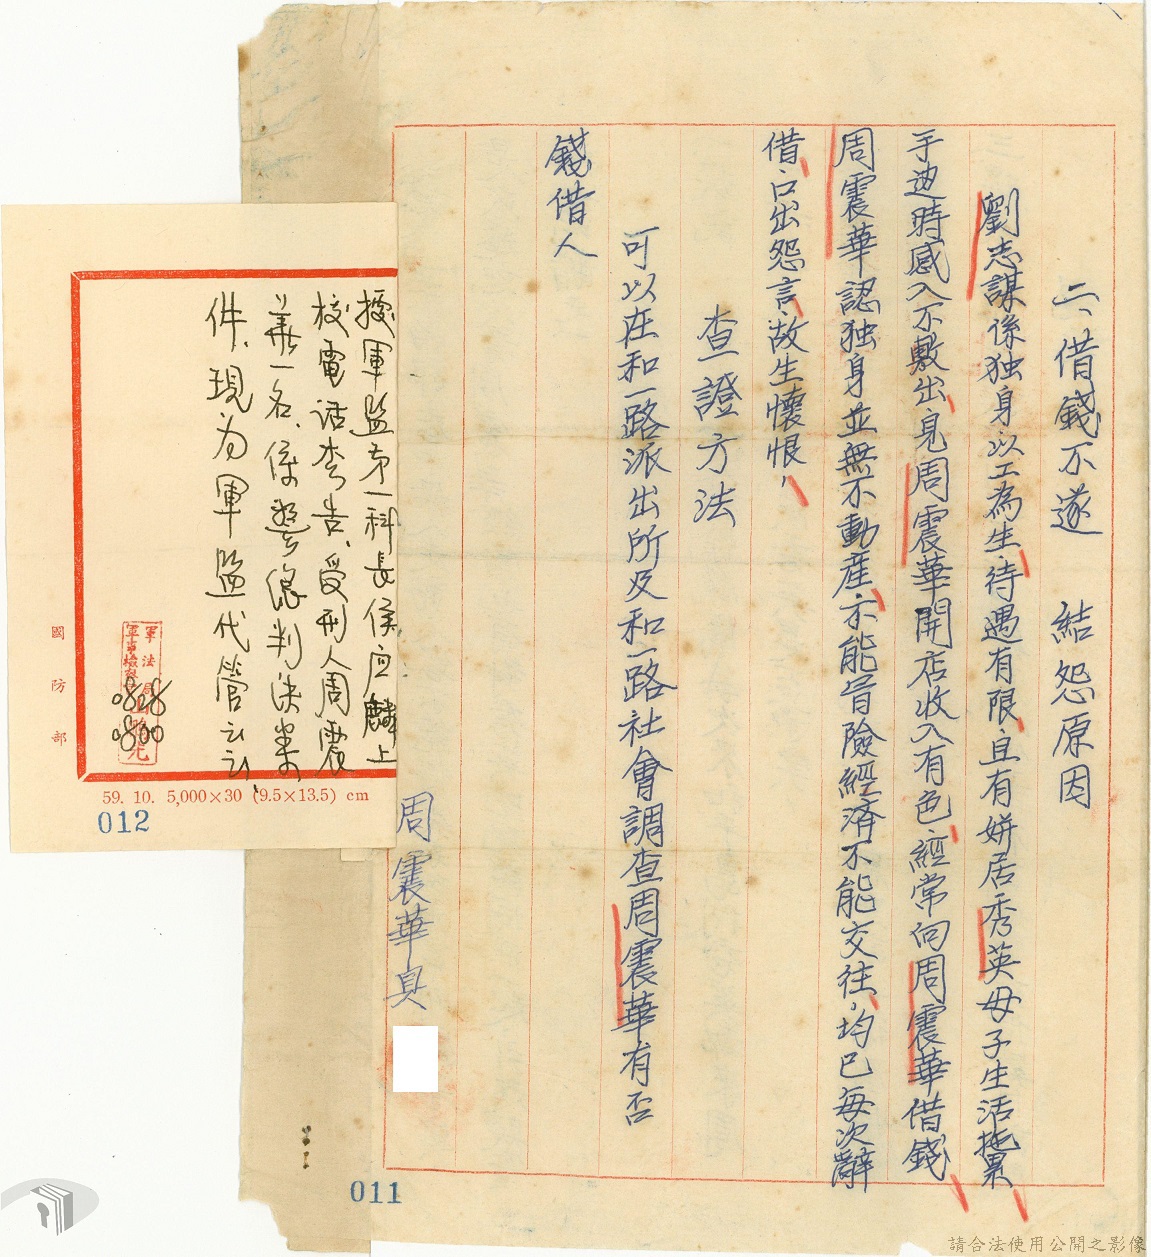 二、借錢不遂 結怨原因
劉志謀係独身以工為生、待遇有限、且有姘居秀英母子生活拖累
手边時感入不敷出、見周震華開店收入有色、經常向周震華借錢、
周震華認独身並無不動產、亦不能冒險經济不能交往、均已每次辭
借、口出怨言、故生懷恨、
查證方法
可以在和一路派出所及和一路社會調查周震華有否
錢借人
周震華具
011
據軍監第一科長侯应麟上
校電話查告、受刑人周震
華一名、係警總判決案
件、現为軍監代管云云、
軍法局
0828
0800
國防部
59. 10. 5,000×30 (9.5×13.5) cm
012
請合法使用公開之影像